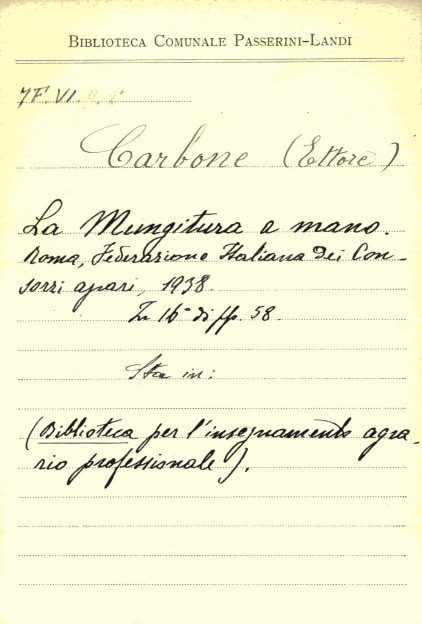 BIBLIOTECA COMUNALE PASSERINI-LANDI
7F. VI. 9. 2°
Carbone (Ettore)
La Mungitura a mano.
Roma, Federazione Italiana dei Con-
sorzi agrari, 1938.
In 16° di pp. 58.
Sta in:
(Biblioteca per l'insegnamento agra-
rio professionale).